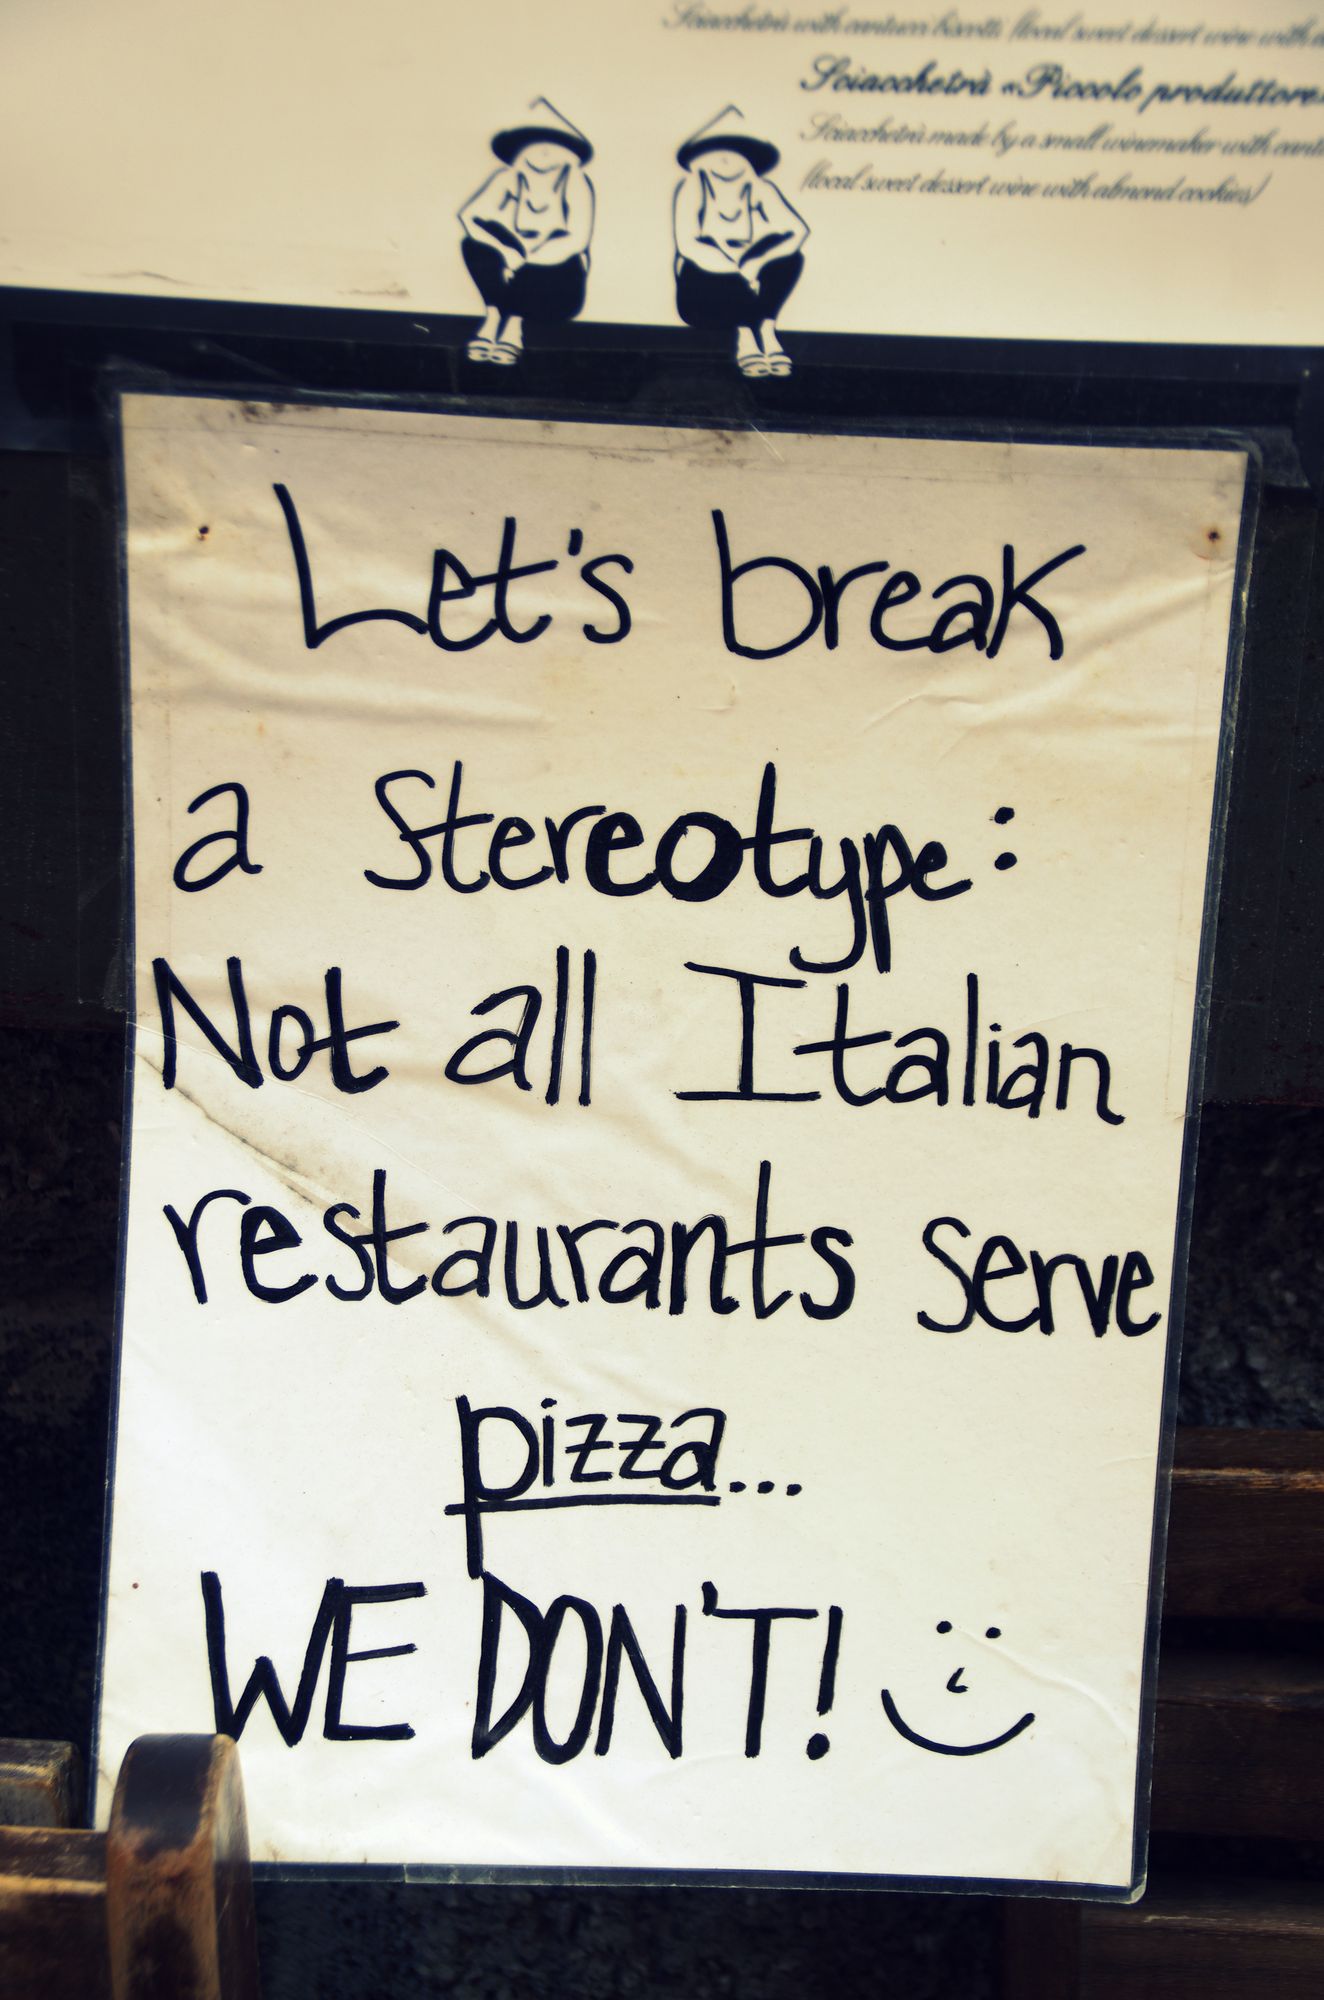 Sciacchetrà with cantucci biscotti (local sweet dessert wine with
Sciacchetrà «Piccolo produttore»
Sciacchetrà made by a small winemaker with
(local sweet dessert wine with almond cookies)
Let's break
a stereotype:
Not all Italian
restaurants serve
pizza...
WE DON'T!